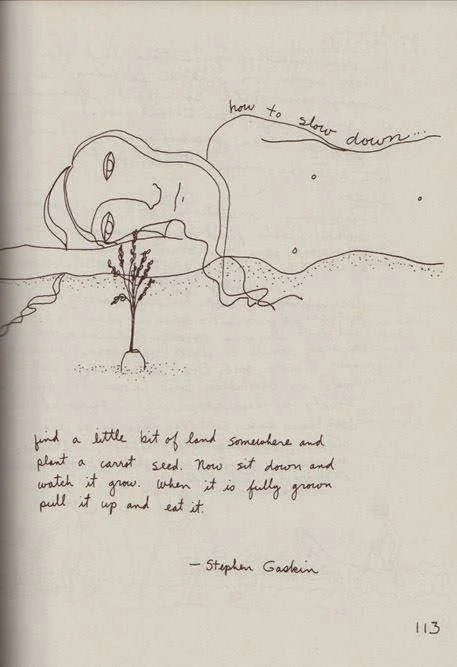 how to slow down...
find a little bit of land somewhere and
plant a carrot seed. Now sit down and
watch it grow. When it is fully grown
pull it up and eat it.
— Stephen Gaskin
113